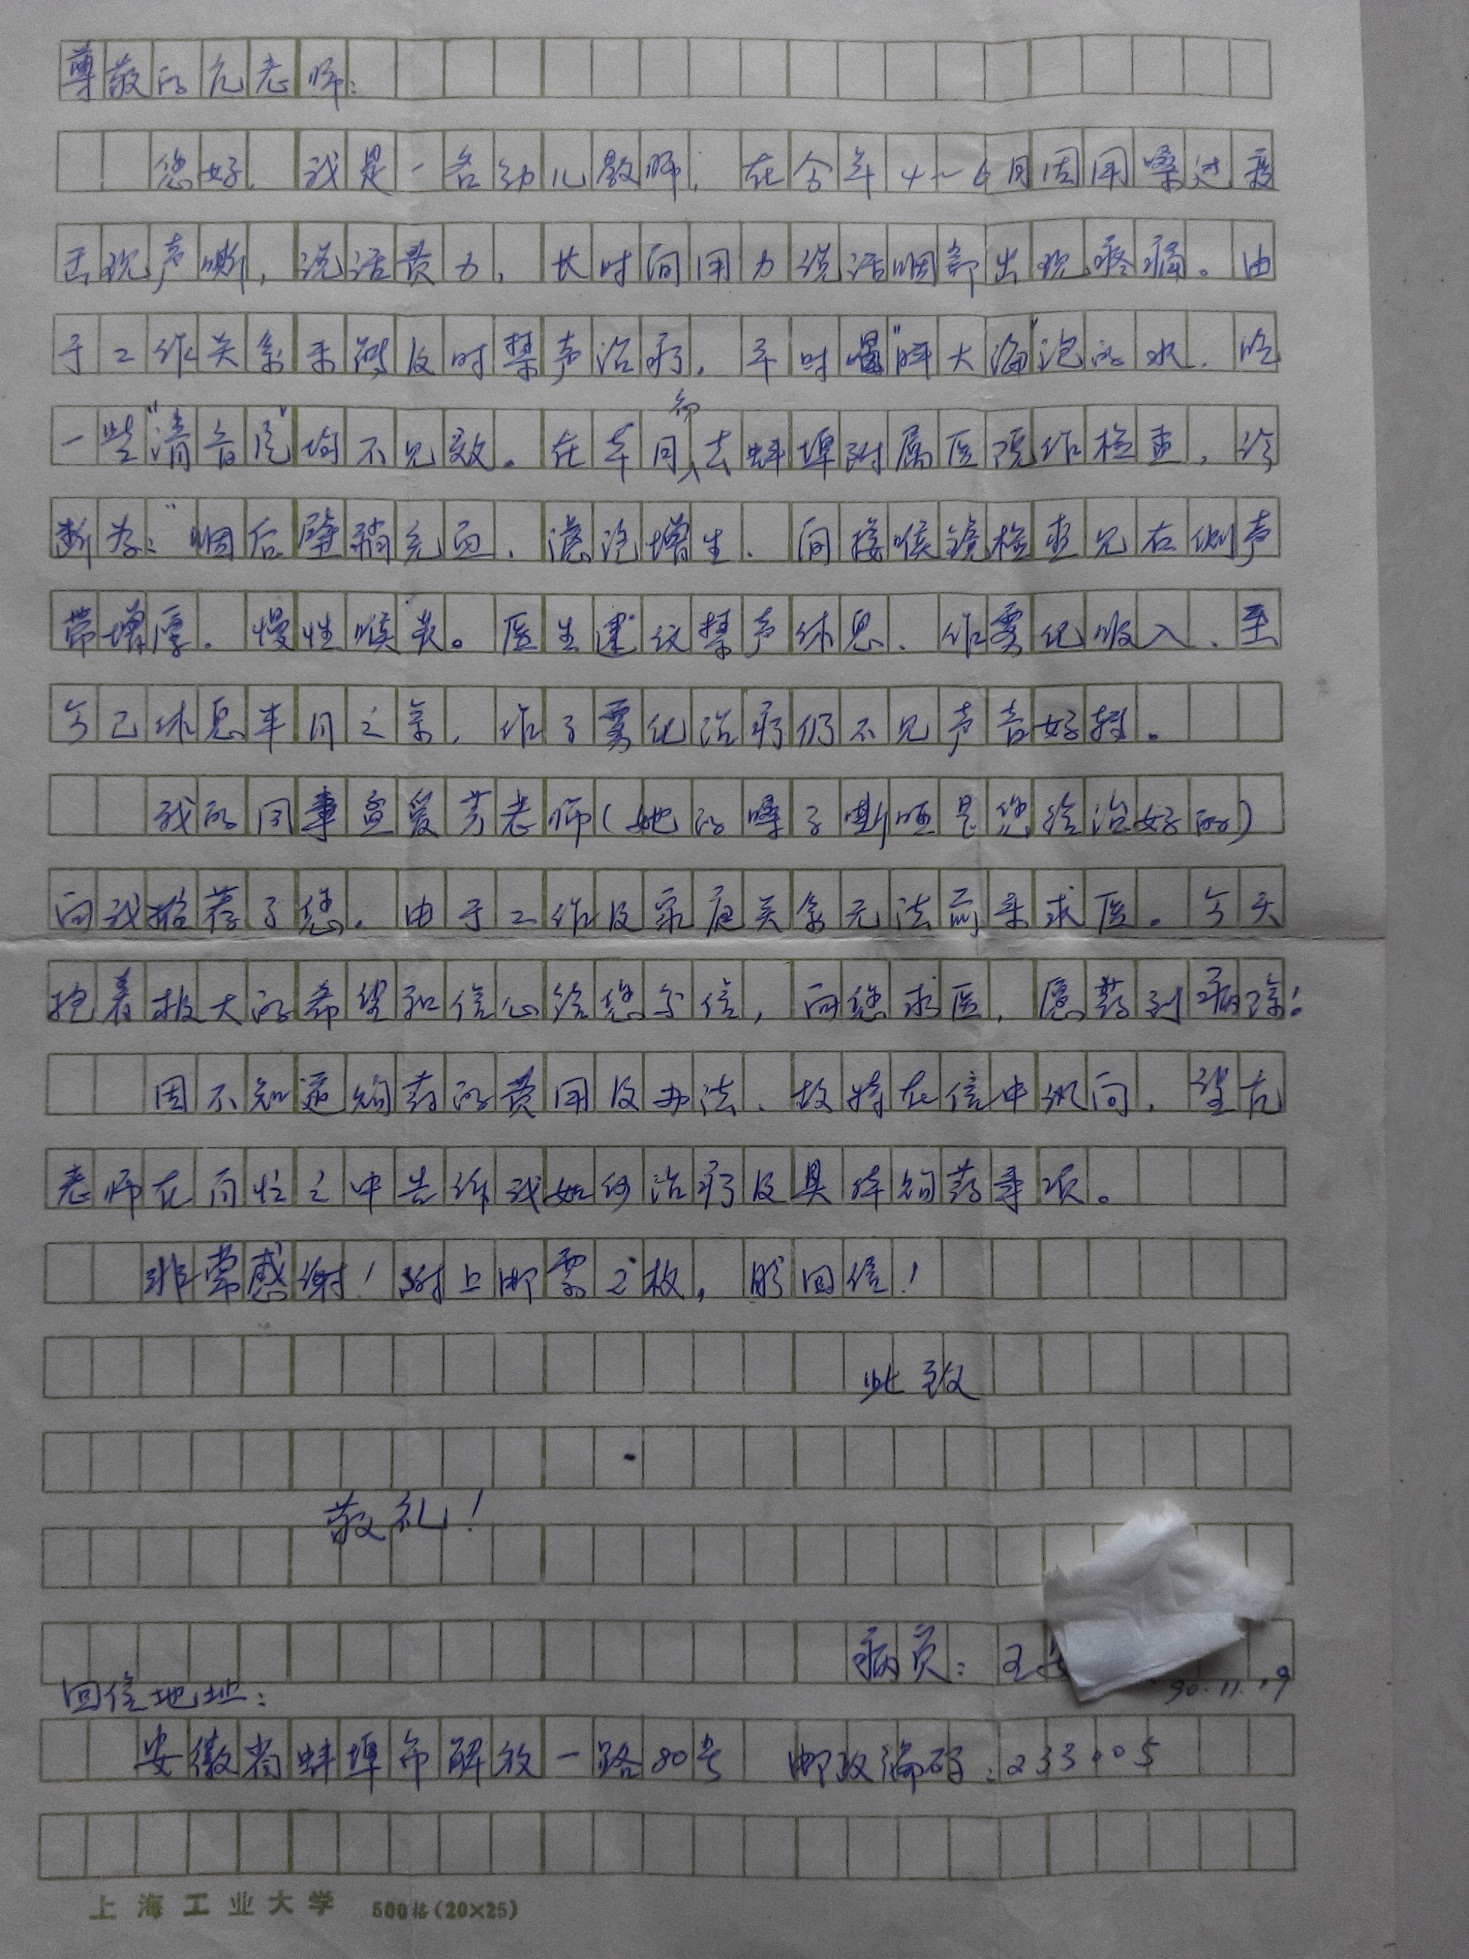 尊敬的亢老师：
您好，我是一名幼儿教师，在今年4～6月因用嗓过度
出现声嘶，说话费力，长时间用力说话咽部出现疼痛。由
于工作关系未能及时禁声治疗，平时喝"胖大海"泡的水，吃
一些"清音丸"均不见效。在半月前去蚌埠附属医院作检查，诊
断为："咽后壁稍充血，滤泡增生，间接喉镜检查见右侧声
带增厚，慢性喉炎。医生建议禁声休息，作雾化吸入，至
今已休息半月之余，作了雾化治疗仍不见声音好转。
我的同事爱芳老师（她的嗓子嘶哑是您给治好的）
向我推荐了您。由于工作及家庭关系无法前来求医。今天
抱着极大的希望和信心给您写信，向您求医，愿药到病除！
因不知邮购药的费用及办法，故特在信中询问，望亢
老师在百忙之中告诉我如何治疗及具体购药事项。
非常感谢！附上邮票2枚，盼回信！
此致
敬礼！
病员：王
90.11.19
回信地址：
安徽省蚌埠市解放一路80号 邮政编码：233005
上海工业大学 500格(20×25)